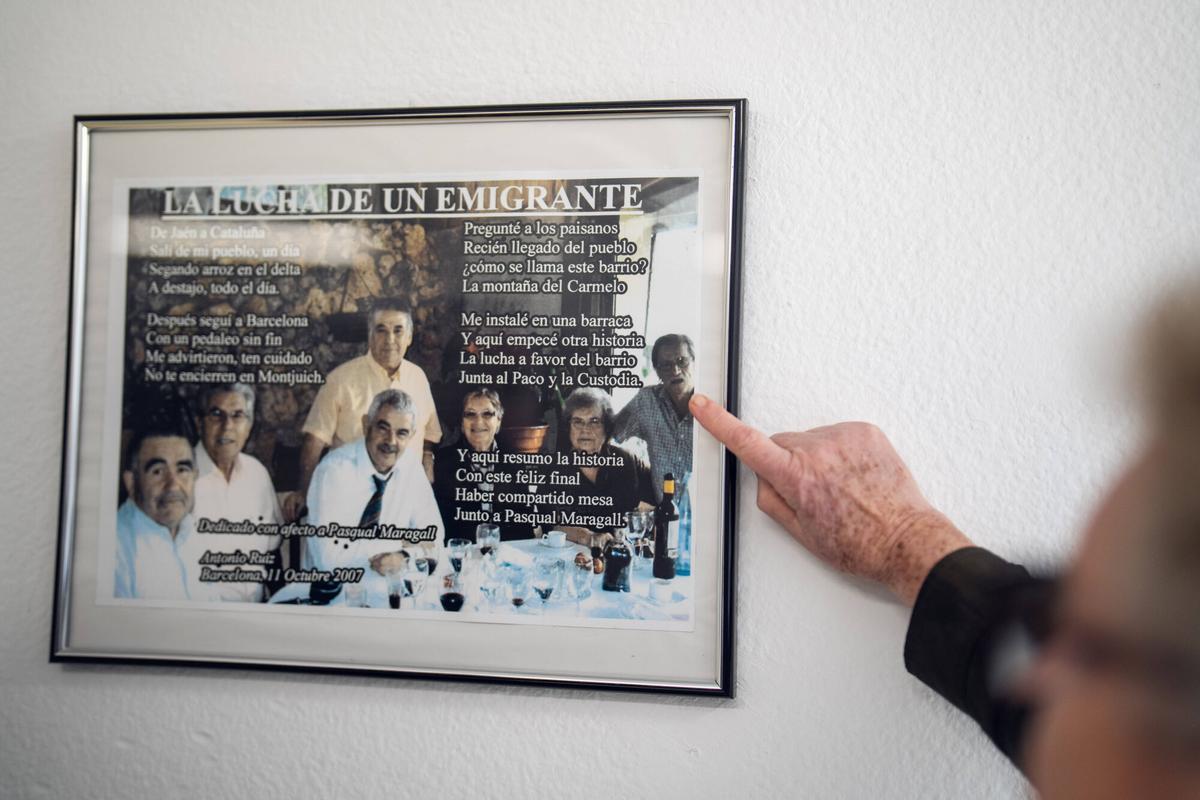 LA LUCHA DE UN EMIGRANTE
De Jaén a Cataluña
Salí de mi pueblo, un día
Segando arroz en el delta
A destajo, todo el día.
Después seguí a Barcelona
Con un pedaleo sin fin
Me advirtieron, ten cuidado
No te encierren en Montjuich.
Pregunté a los paisanos
Recién llegado del pueblo
¿cómo se llama este barrio?
La montaña del Carmelo
Me instalé en una barraca
Y aquí empecé otra historia
La lucha a favor del barrio
Junta al Paco y la Custodia.
Y aquí resumo la historia
Con este feliz final
Haber compartido mesa
Junto a Pasqual Maragall.
Dedicado con afecto a Pasqual Maragall
Antonio Ruiz
Barcelona, 11 Octubre 2007